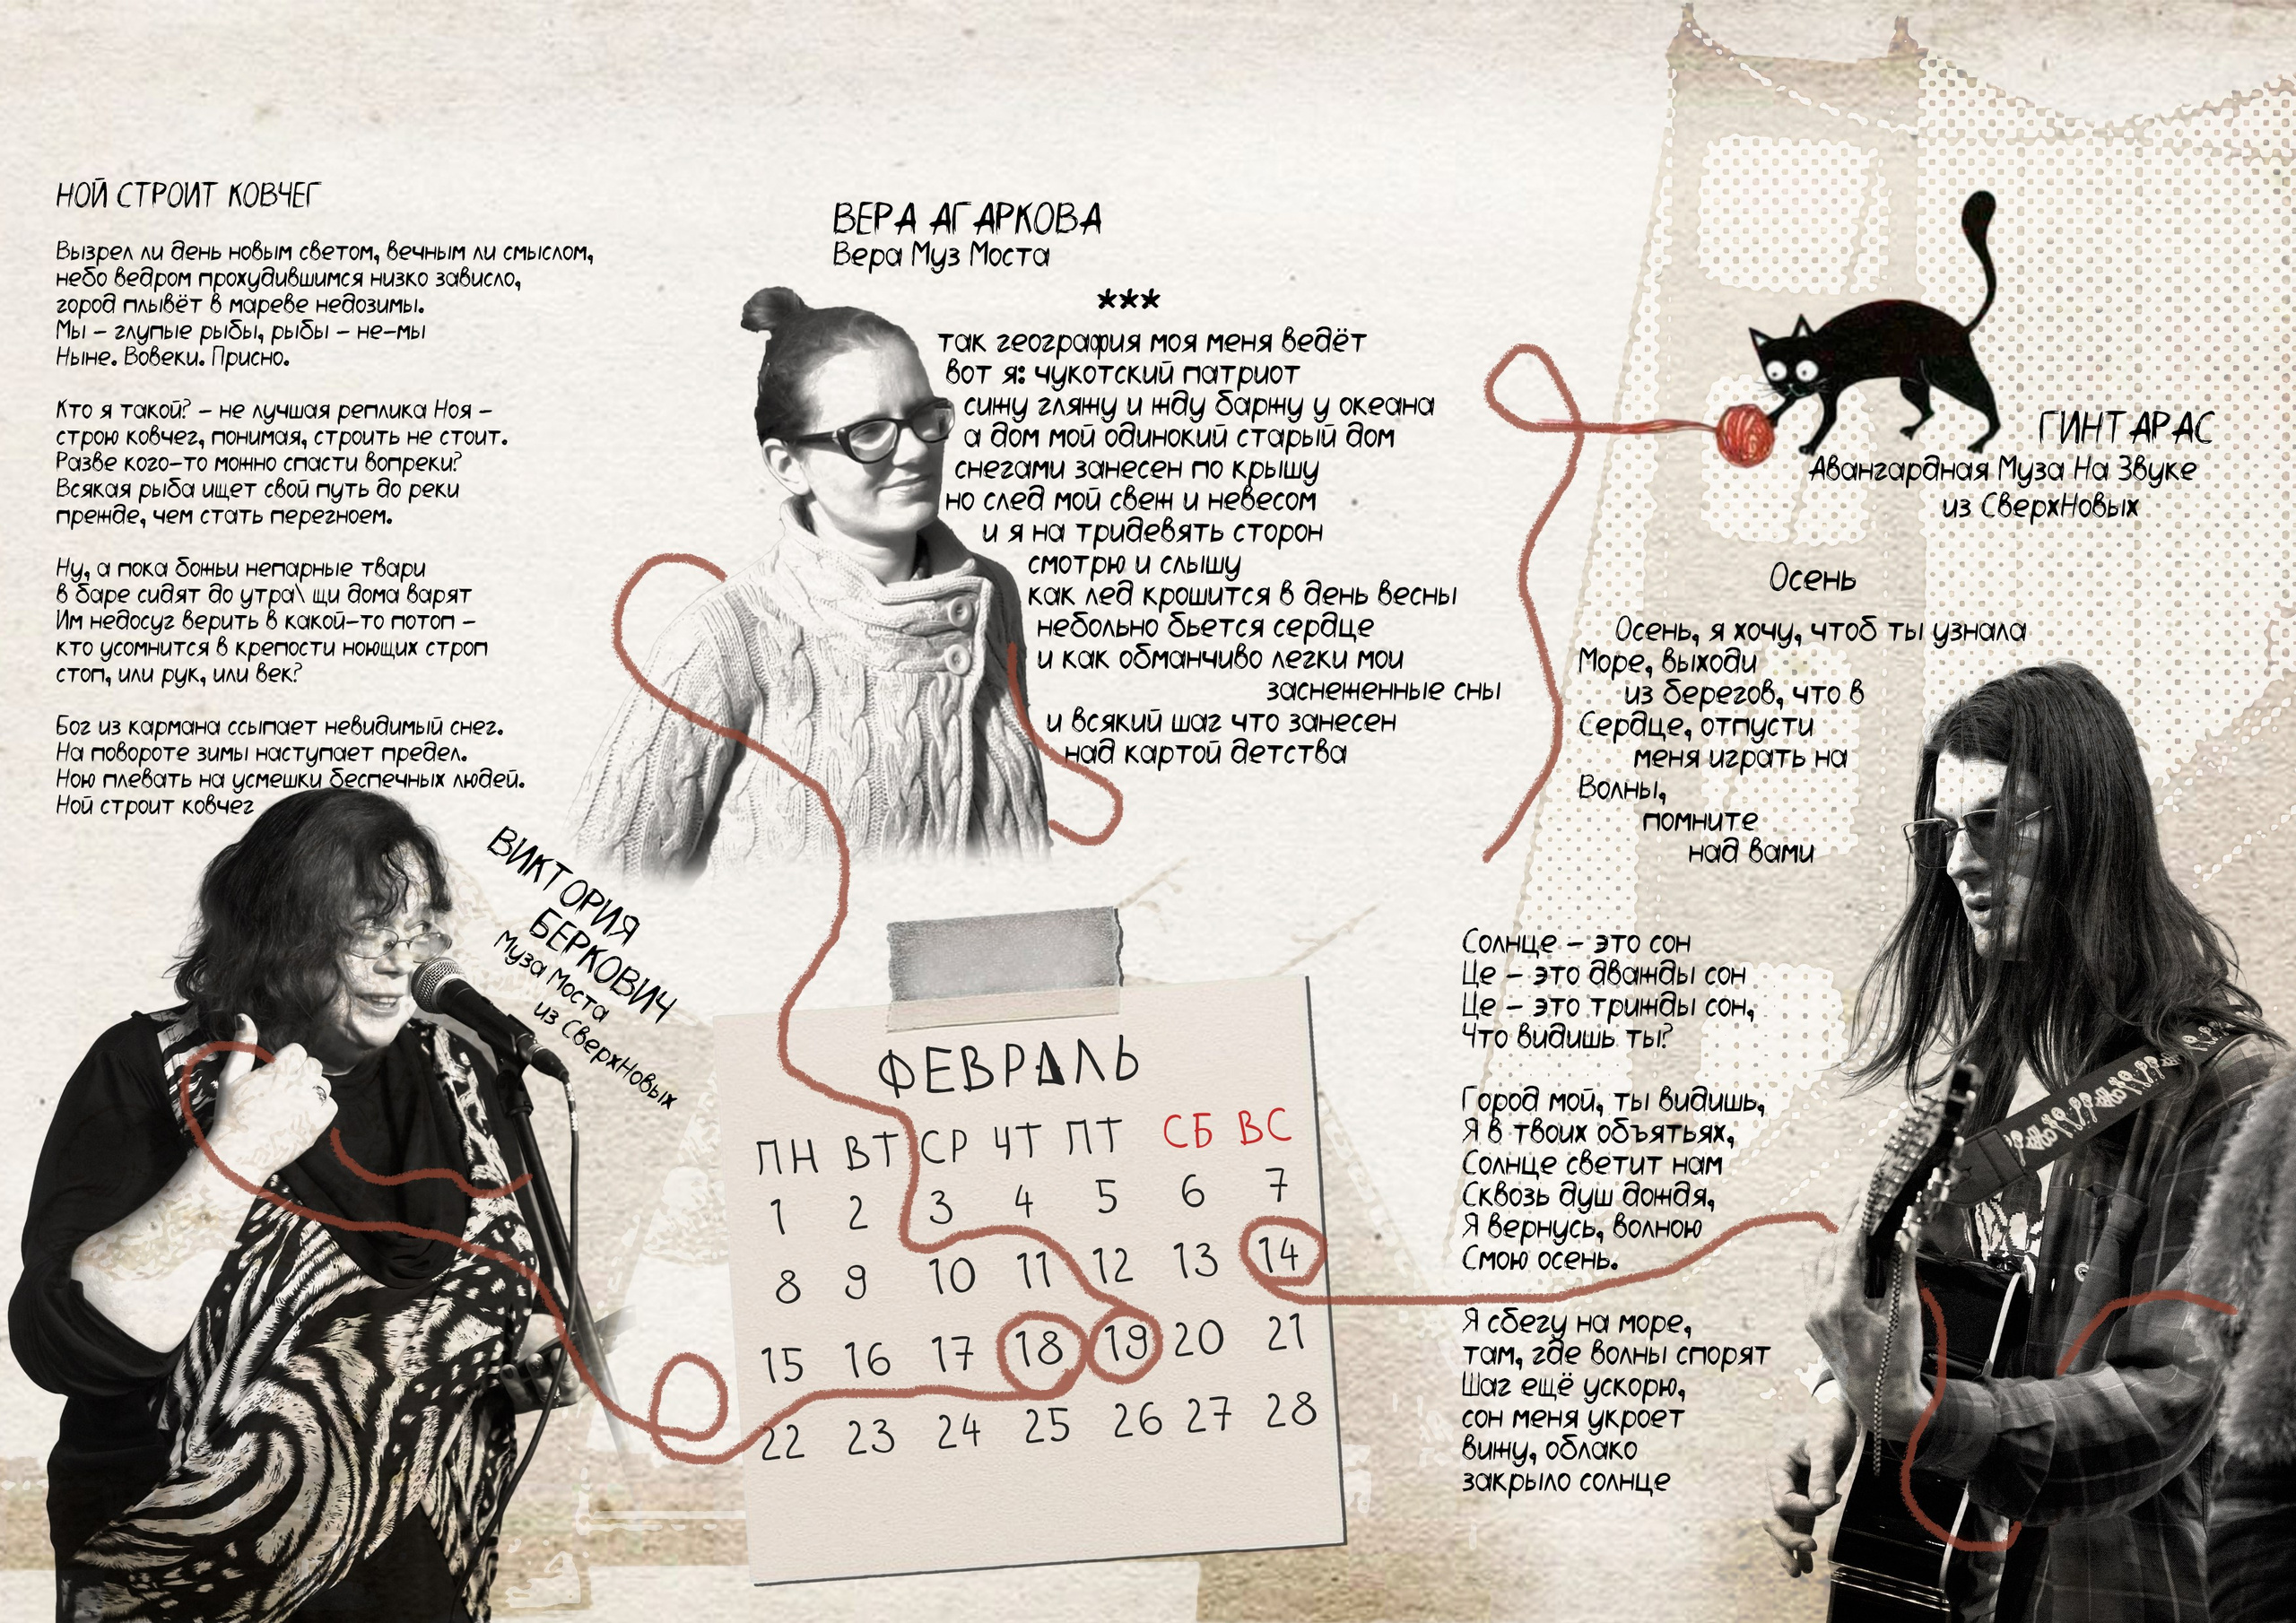 НОЙ СТРОИТ КОВЧЕГ
Вызрел ли день новым светом, вечным ли смыслом,
небо ведром прохудившимся низко зависло,
город плывёт в мареве недозимы.
Мы – глупые рыбы, рыбы – не-мы
Ныне. Вовеки. Присно.
Кто я такой? – не лучшая реплика Ноя –
строю ковчег, понимая, строить не стоит.
Разве кого-то можно спасти вопреки?
Всякая рыба ищет свой путь до реки
прежде, чем стать перегноем.
Ну, а пока божьи непарные твари
в баре сидят до утра\ щи дома варят
Им недосуг верить в какой-то потоп –
кто усомнится в крепости ноющих строп
стоп, или рук, или век?
Бог из кармана ссыпает невидимый снег.
На повороте зимы наступает предел.
Ною плевать на усмешки беспечных людей.
Ной строит ковчег
ВИКТОРИЯ
БЕРКОВИЧ
Муза Моста
из СверхНовых
ВЕРА АГАРКОВА
Вера Муз Моста
***
так география моя меня ведёт
вот я: чукотский патриот
сижу гляжу и жду баржу у океана
а дом мой одинокий старый дом
снегами занесен по крышу
но след мой свеж и невесом
и я на тридевять сторон
смотрю и слышу
как лед крошится в день весны
небольно бьется сердце
и как обманчиво легки мои
заснеженные сны
и всякий шаг что занесен
над картой детства
ФЕВРАЛЬ
ПН ВТ СР ЧТ ПТ СБ ВС
1 2 3 4 5 6 7
8 9 10 11 12 13 14
15 16 17 18 19 20 21
22 23 24 25 26 27 28
ГИНТАРАС
Авангардная Муза На Звуке
из СверхНовых
Осень
Осень, я хочу, чтоб ты узнала
Море, выходи
из берегов, что в
Сердце, отпусти
меня играть на
Волны,
помните
над вами
Солнце – это сон
Це – это дважды сон
Це – это трижды сон,
Что видишь ты?
Город мой, ты видишь,
Я в твоих объятьях,
Солнце светит нам
Сквозь душ дождя,
Я вернусь, волною
Смою осень.
Я сбегу на море,
там, где волны спорят
Шаг ещё ускорю,
сон меня укроет
вижу, облако
закрыло солнце